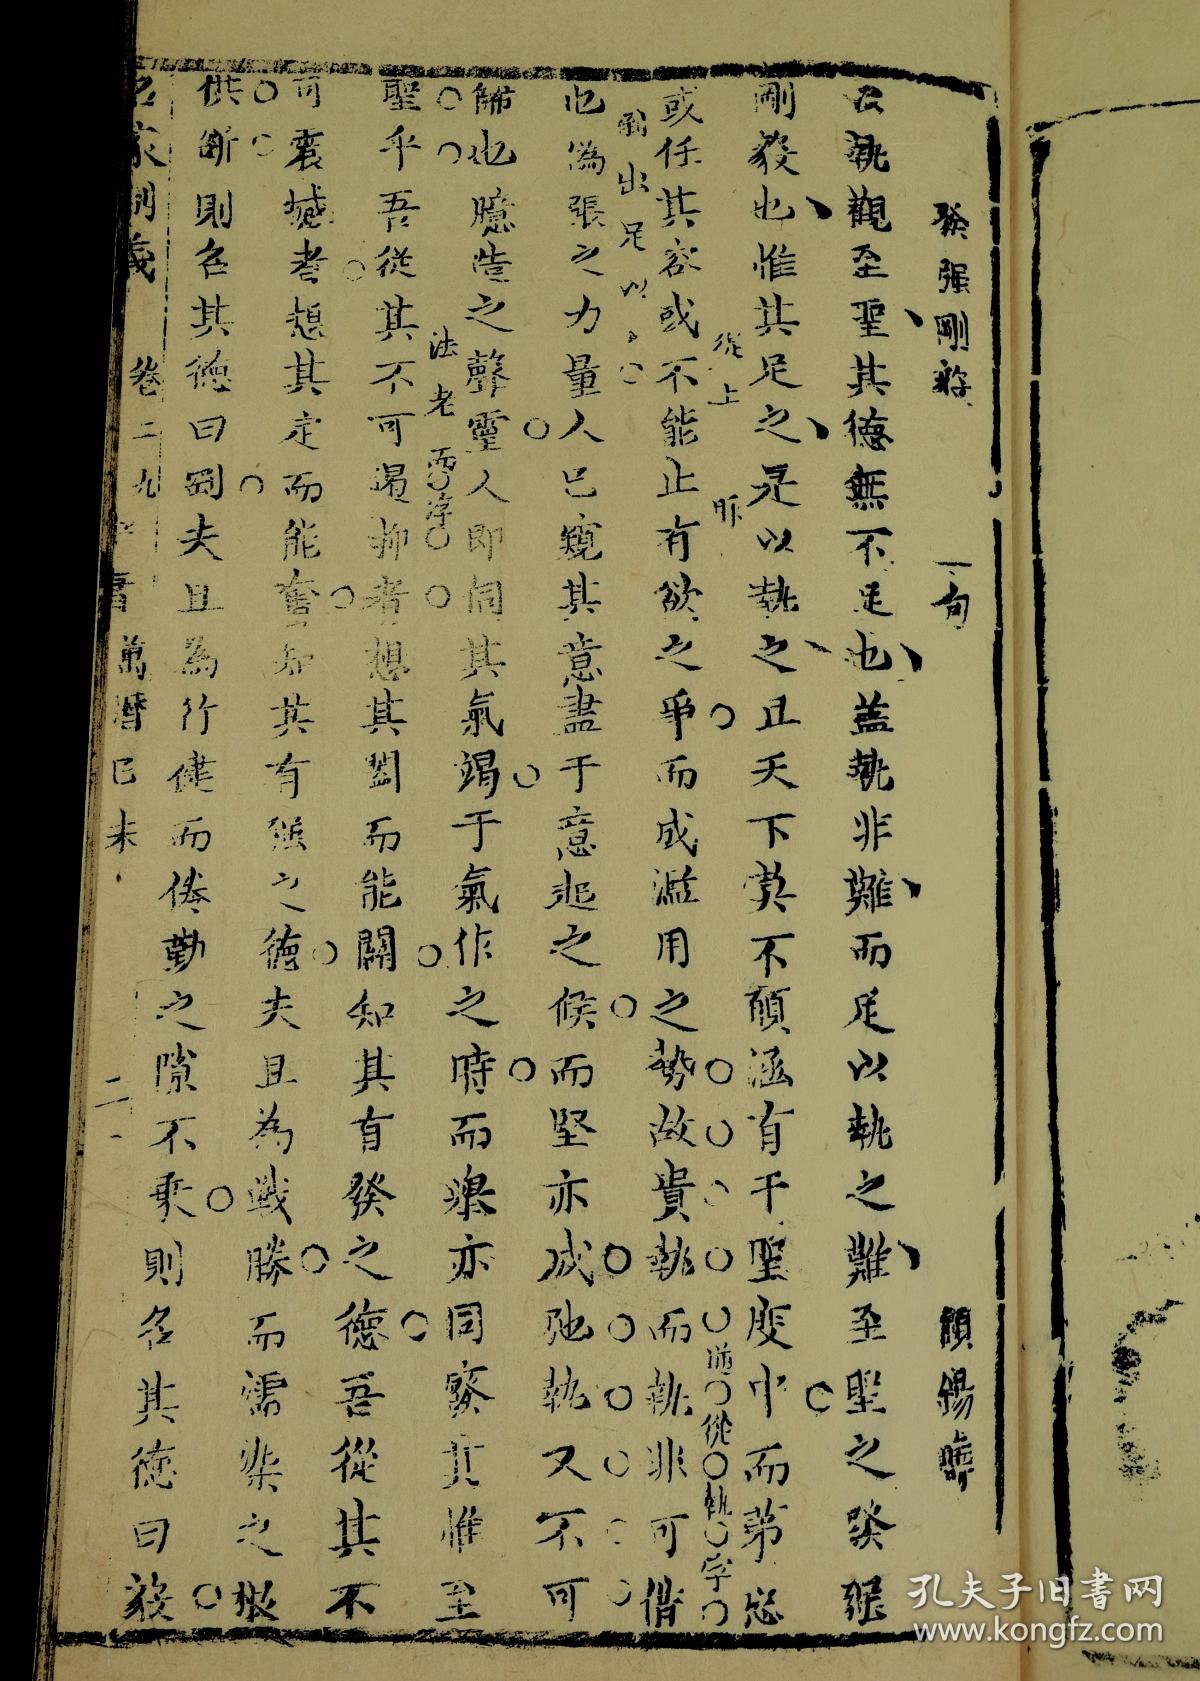 發强剛毅 一句 顧錫疇
以執觀至聖其德無不足也蓋執非難而足以執之難至聖之發强
剛毅也惟其足之是以執之且天下莫不頤涵有干聖度中而第恐
從上 昨
或任其容或不能止有欲之爭而成濫用之勢故貴執而執非可借
逆從執字
倒出足以
也為張之力量人已窺其意盡于意起之候而堅亦成弛執又不可
飾也臆造之聲靈人即伺其氣竭于氣作之時而操亦同寮其惟至
法老 字
聖乎吾從其不可遏抑者想其闓而能闢知其有發之德吾從其不
可震撼者想其定而能奮知其有强之德夫且為戰勝而濡柴之根
供斷則名其德曰剛夫且為行健而倦勤之隙不乘則名其德曰毅
名家制義 卷二九 書 萬曆己未 二
孔夫子旧书网
www.kongfz.com